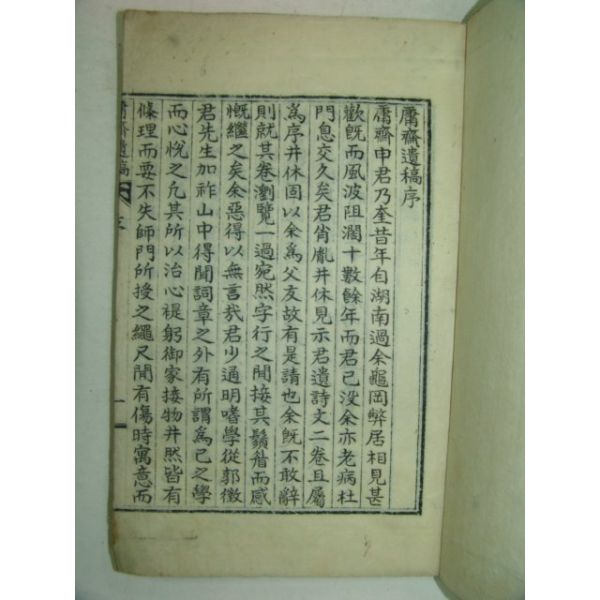 庸齋遺稿序
庸齋申君乃奎昔年自湖南過余龜岡弊居相見甚
歡旣而風波阻濶十數餘年而君已没余亦老病杜
門息交久矣君肖胤井休見示君遺詩文二卷且屬
爲序井休固以余爲父友故有是請也余旣不敢辭
則就其卷瀏覽一過宛然字行之間接其鬚眉而感
慨繼之矣余惡得以無言哉君少通明嗜學從郭徵
君先生加祚山中得聞詞章之外有所謂爲己之學
而心悅之凡其所以治心褆躬御家接物井然皆有
條理而要不失師門所授之繩尺間有傷時寓意而
庸齋遺稿 序 一